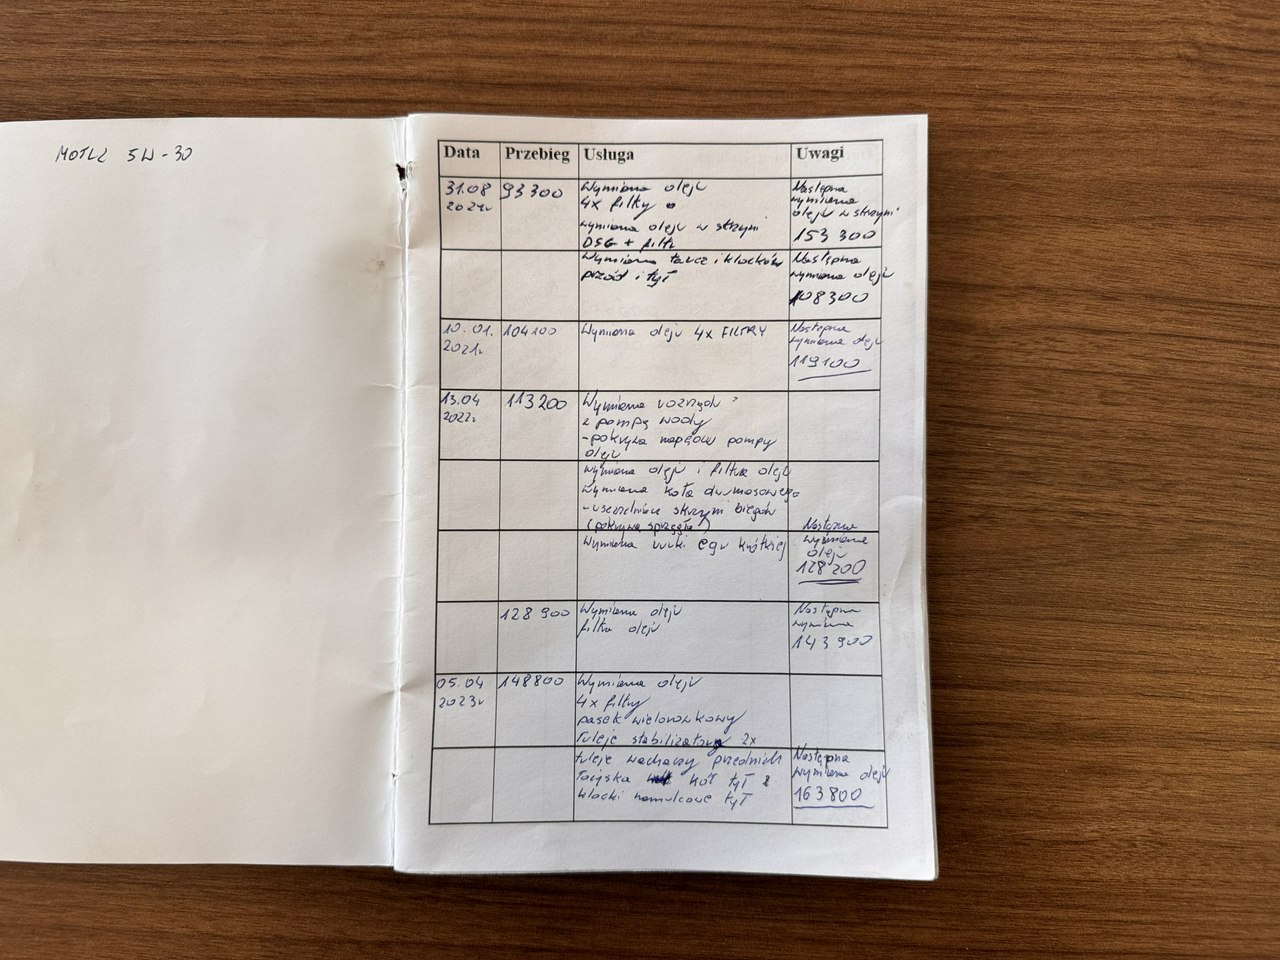 MOTUL 5W-30
Data Przebieg Usługa Uwagi
31.08
2021r
93300
Wymiana oleju
4x filtry
wymiana oleju w skrzyni
DSG + filtr
Następna
wymiana
oleju w skrzyni
153 300
Wymiana tarcz i klocków
przód i tył
Następna
wymiana oleju
108300
10.01.
2021r
104100
Wymiana oleju 4x FILTRY
Następna
wymiana oleju
119100
13.04
2022r
113200
Wymiana rozrządu
z pompą wody
- pokrywa napędów pompy
oleju
wymiana oleju i filtra oleju
Wymiana koła dwumasowego
- uszczelnienie skrzyni biegów
(pokrywa sprzęgła)
Wymiana rurki egr krótkiej
Następna
wymiana
oleju
128 200
128 900
Wymiana oleju
filtra oleju
Następna
wymiana
143 900
05.04
2023r
148800
Wymiana oleju
4x filtry
pasek wielorowkowy
Tuleje stabilizatora 2x
tuleje wachaczy przednich
Łożyska kół tył
klocki hamulcowe tył
Następna
wymiana oleju
163800